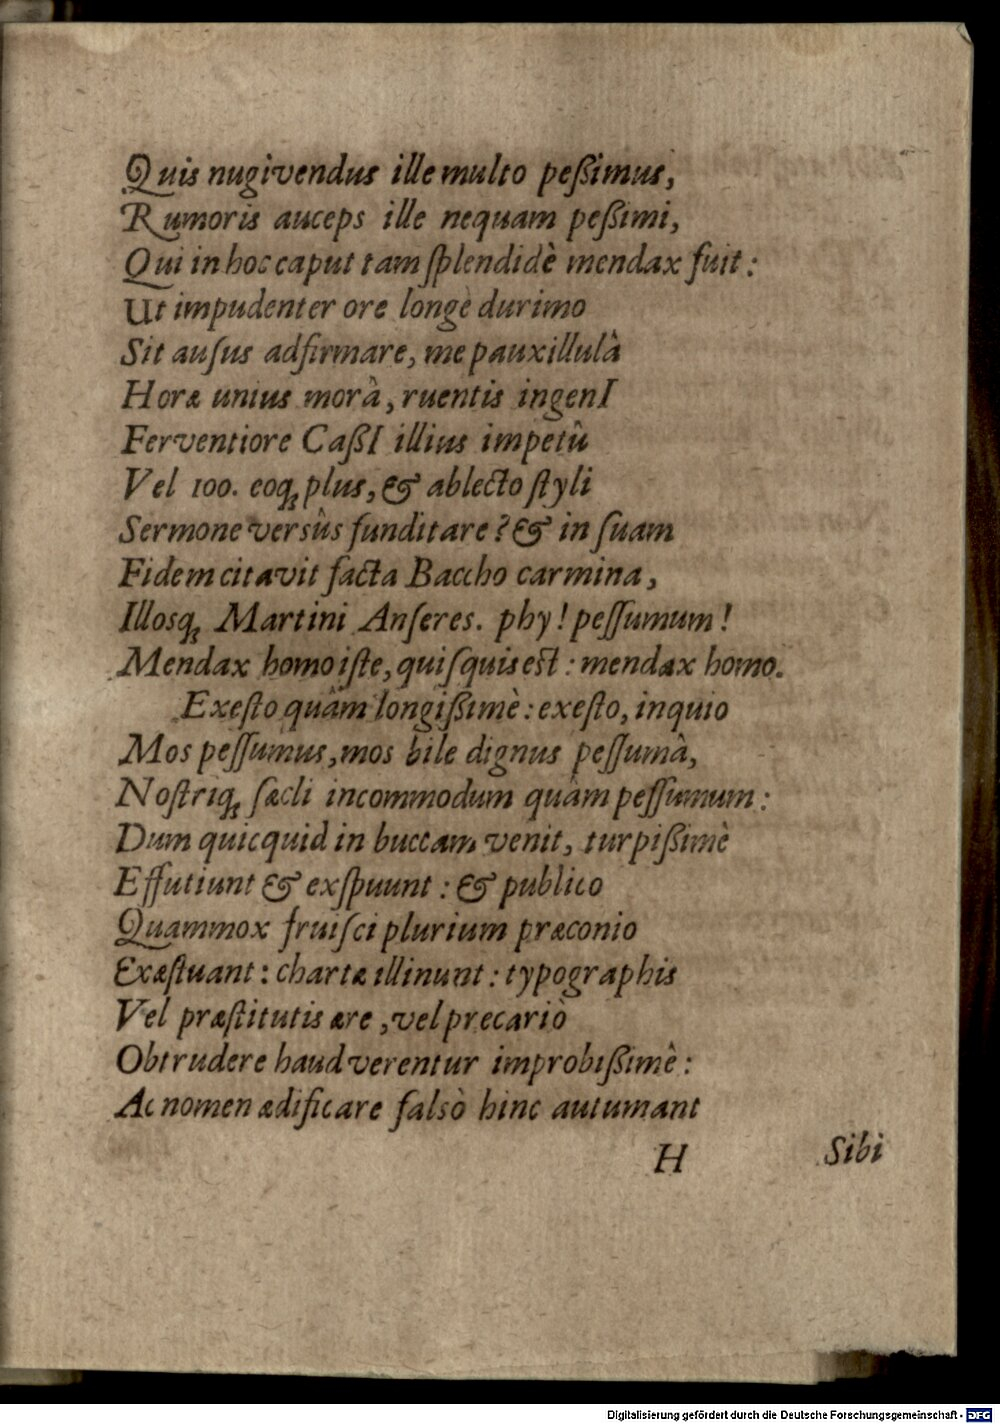 Quis nugivendus ille multo peßimus,
Rumoris auceps ille nequam peßimi,
Qui in hoc caput tam ſplendidè mendax fuit:
Ut impudenter ore longè durimo
Sit auſus adfirmare, me pauxillulâ
Horæ unius morâ, ruentis ingenI
Ferventiore CaßI illius impetû
Vel 100. eoq́; plus, & ablecto ſtyli
Sermone versûs funditare? & in ſuam
Fidem citavit facta Baccho carmina,
Illosq́; Martini Anſeres. phy! peſſumum!
Mendax homo iſte, quiſquis eſt: mendax homo.
Exeſto quàm longißimè: exeſto, inquio
Mos peſſumus, mos bile dignus peſſumâ,
Noſtriq́; ſæcli incommodum quàm peſſumum:
Dum quicquid in buccam venit, turpißimè
Effutiunt & exſpuunt: & publico
Quammox fruiſci plurium præconio
Exæſtuant: chartæ illinunt: typographis
Vel præſtitutis ære, vel precariò
Obtrudere haud verentur improbißimè:
Ac nomen ædificare falsò hinc autumant
H Sibi
Digitalisierung gefördert durch die Deutsche Forschungsgemeinschaft - DFG